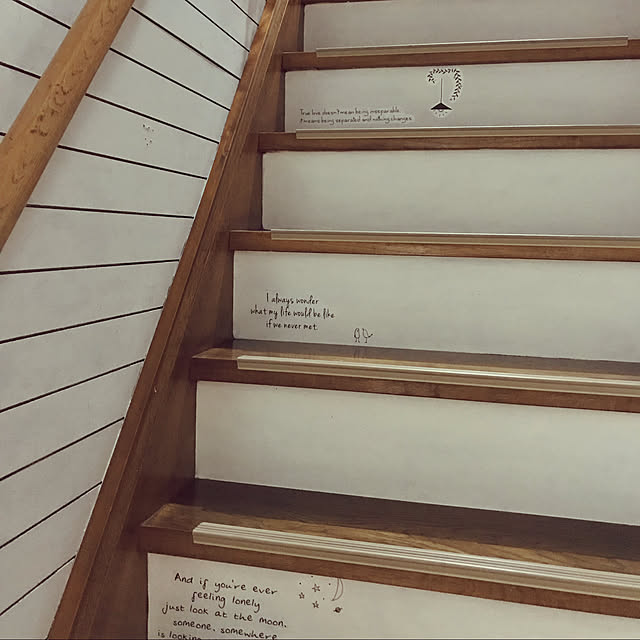 True love doesn't mean being inseparable
it means being separated and nothing changes.
I always wonder
what my life would be like
if we never met.
And if you're ever
feeling lonely
just look at the moon.
someone, somewhere
is looking